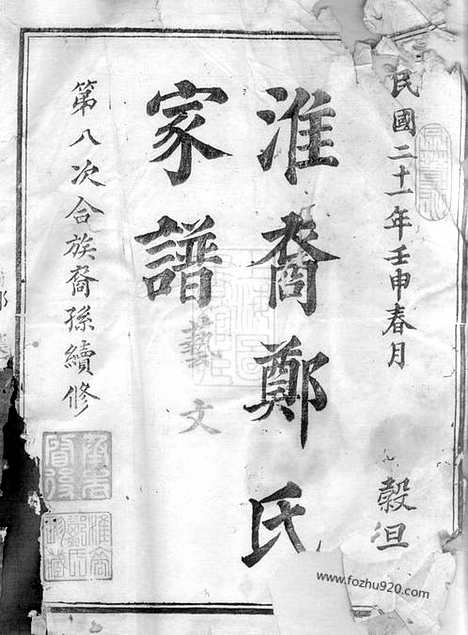 民國二十一年壬申春月
穀旦
淮裔鄭氏
家譜
藝文
第八次合族裔孫續修
www.fozhu920.com